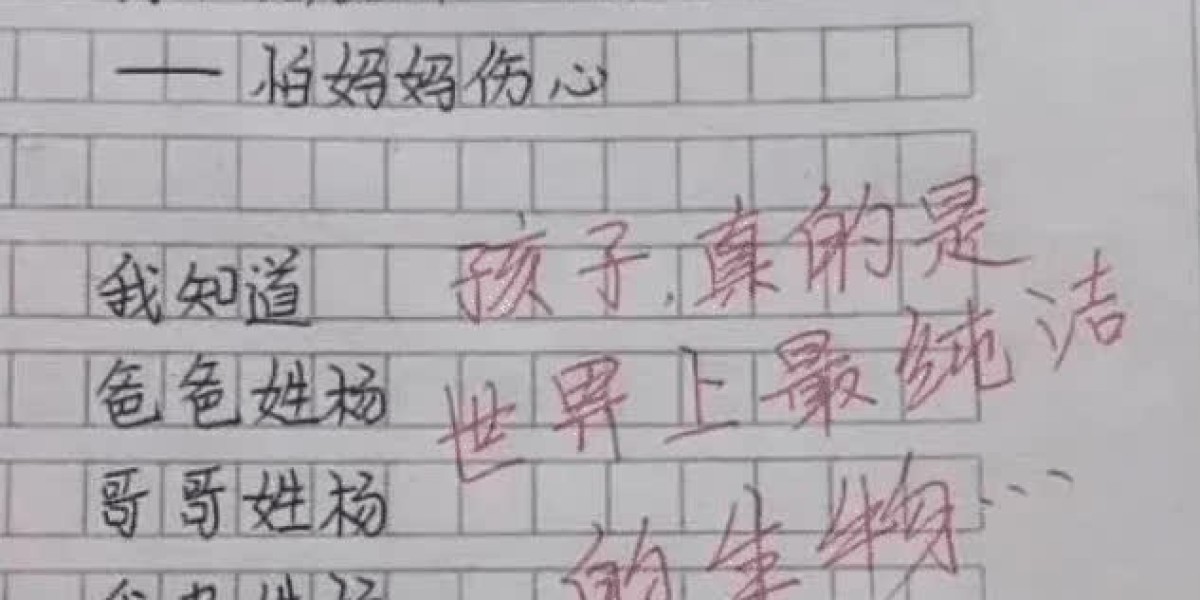 ——怕妈妈伤心
我知道
爸爸姓杨
哥哥姓杨
我也姓杨
孩子,真的是
世界上最纯洁
的生物…